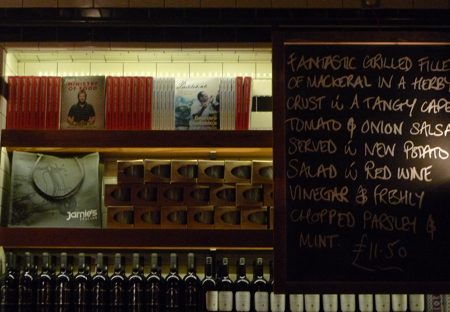 MINISTRY OF FOOD
jamie's
ITALIAN
FANTASTIC GRILLED FILLE
OF MACKERAL IN A HERBY
CRUST W A TANGY CAPE
TOMATO & ONION SALSA
SERVED W NEW POTATO
SALAD W RED WINE
VINEGAR & FRESHLY
CHOPPED PARSLEY &
MINT. £11.50